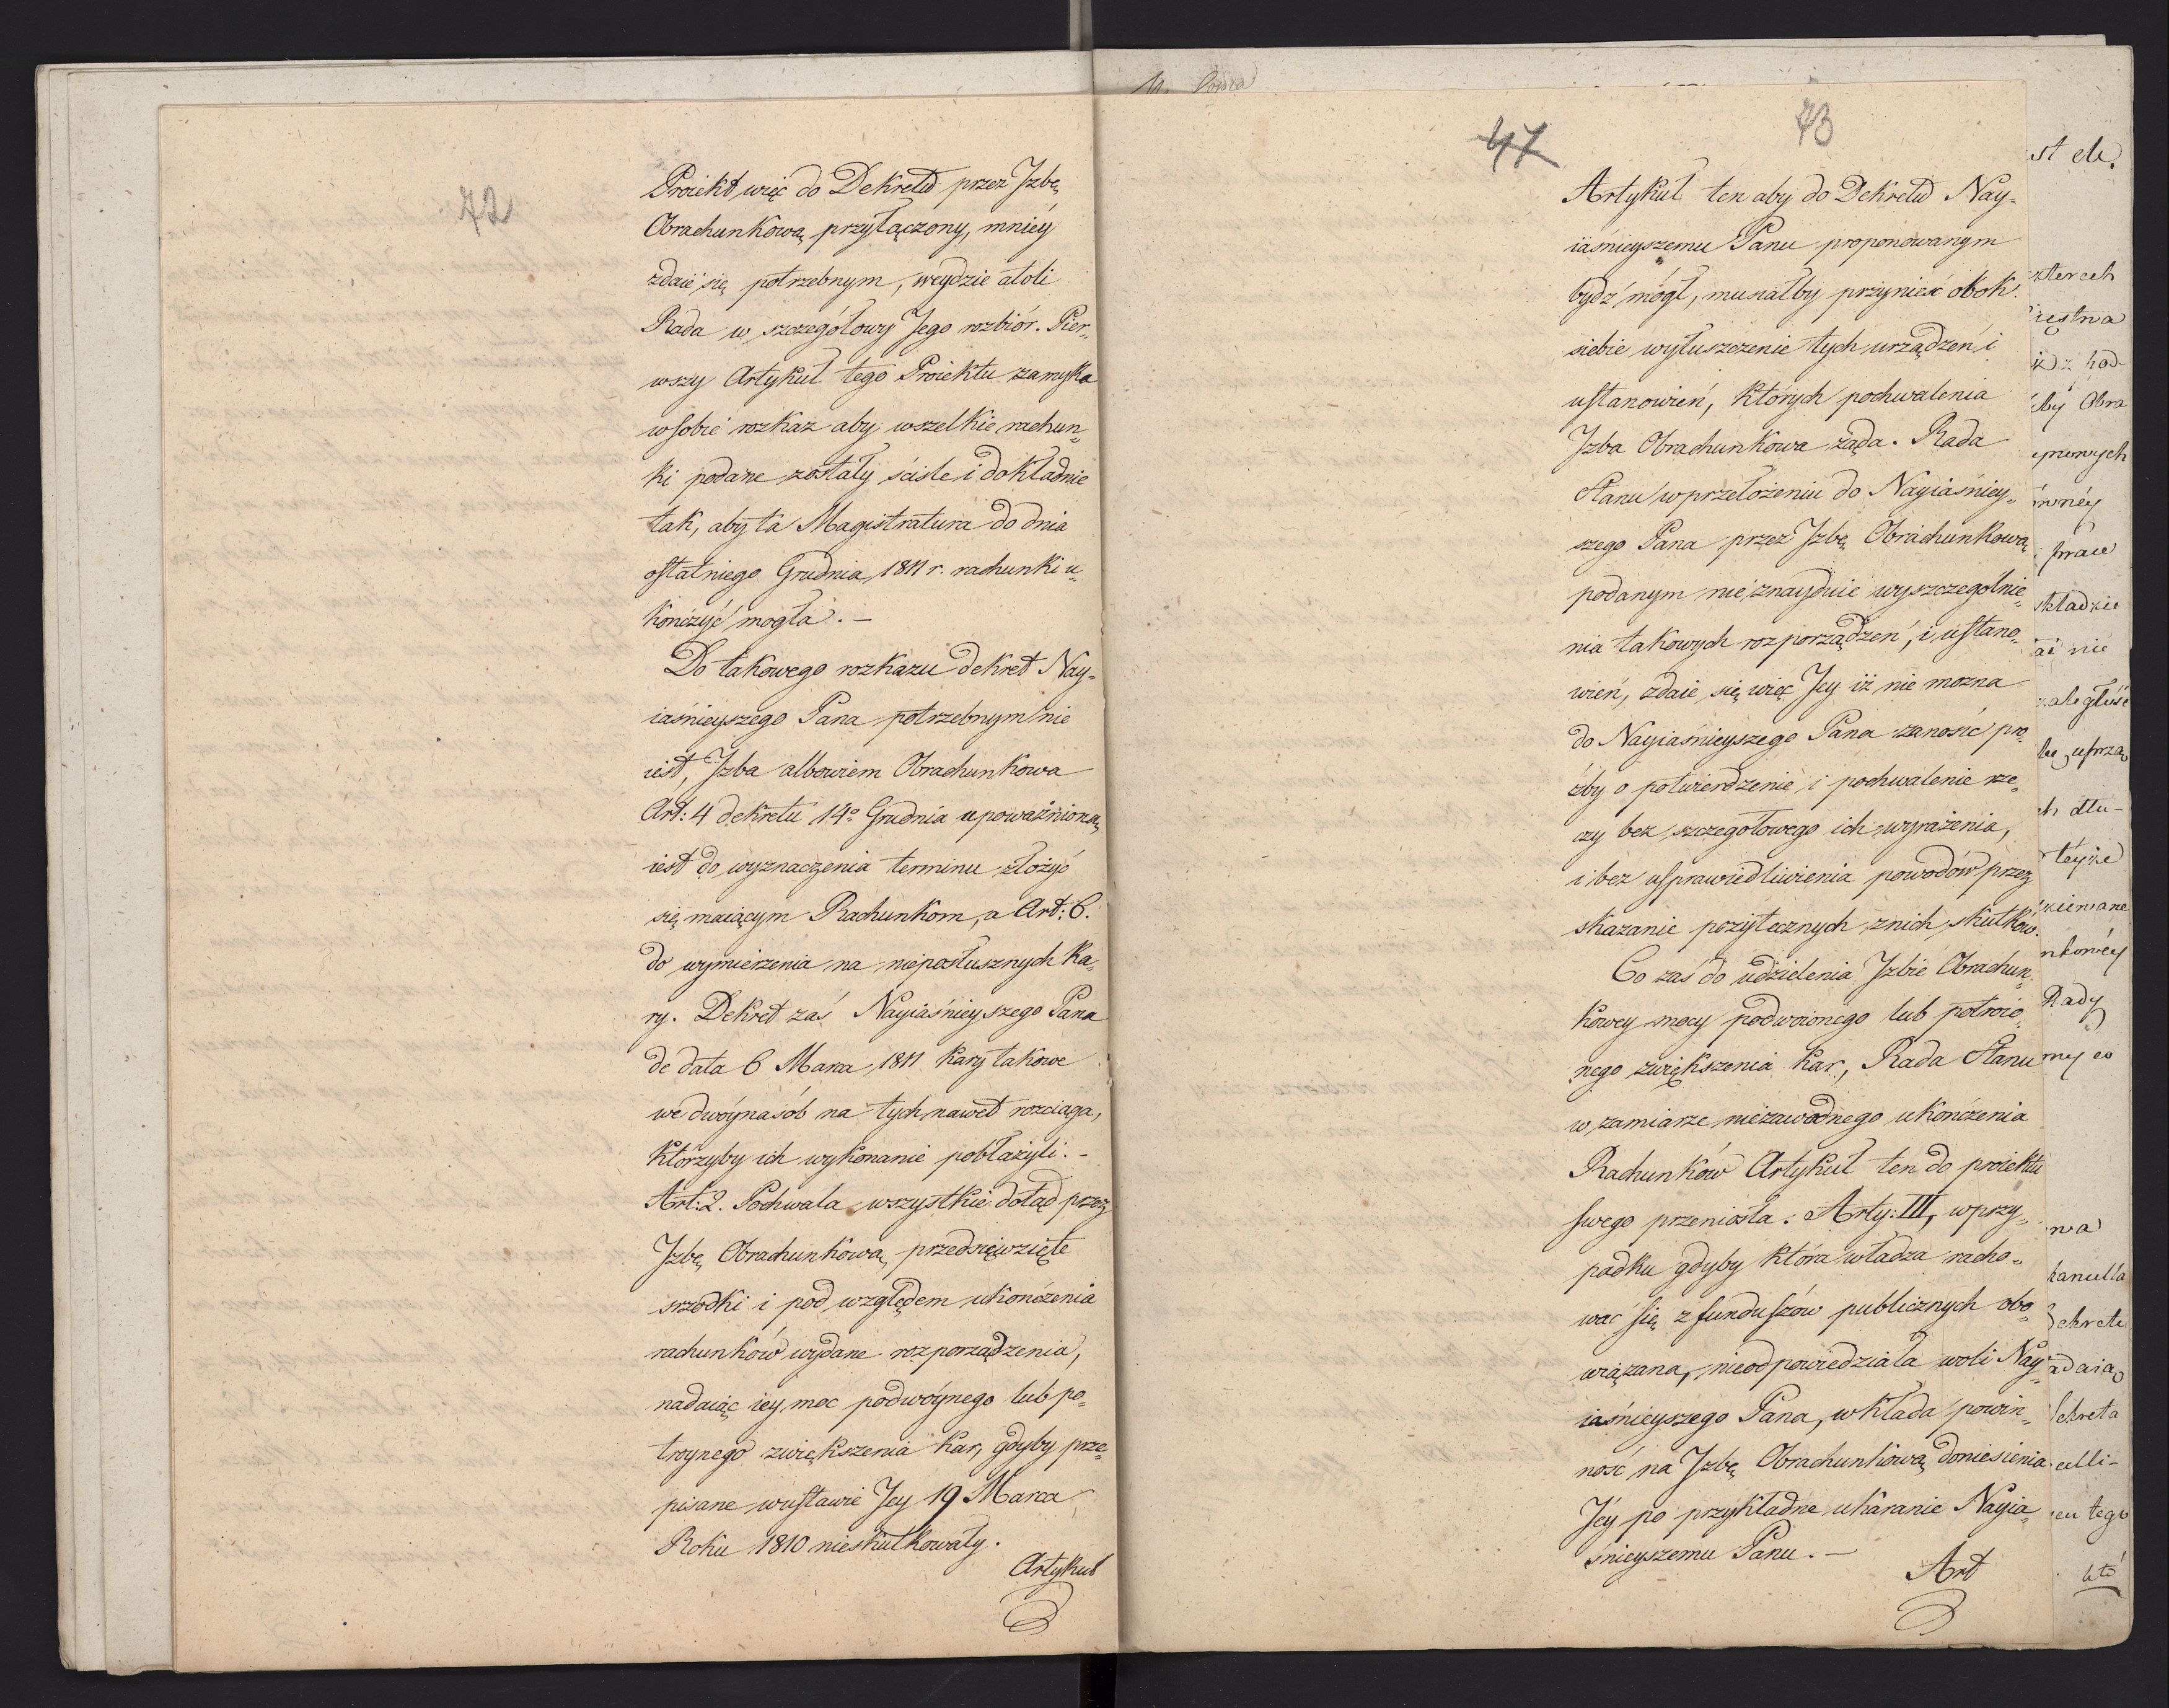 72
Proiekt więc do Dekretu przez Jzbę
Obrachunkową przyłączony, mniey
zdaie się potrzebnym, weydzie atoli
Rada w szczegółowy Jego rozbiór. Pier„
wszy Artykuł tego Proiektu zamyka
w sobie rozkaz aby wszelkie rachun„
ki podane zostały ściśle i dokładnie
tak, aby ta Magistratura do dnia
ostatniego Grudnia 1811 r. rachunki u„
kończyć mogła. –
Do takowego rozkazu dekret Nay„
iaśnieyszego Pana potrzebnym nie
iest, Jzba albowiem Obrachunkowa
Art: 4 dekretu 14º Grudnia upoważnioną
iest do wyznaczenia terminu złożyć
się maiącym Rachunkom, a Art: 6.
do wymierzenia na nieposłusznych ka„
ry. Dekret zaś Nayiaśnieyszego Pana
de data 6 Marca 1811 kary takowe
we dwóynasób na tych nawet rozciąga,
którzyby ich wykonanie pobłażyli. –
Art: 2. Pochwala wszystkie dotąd przez
Jzbę Obrachunkową przedsięwzięte
srzodki i pod względem ukończenia
rachunków wydane rozporządzenia,
nadaiąc iey moc podwóynego lub po„
troynego zwiększenia kar, gdyby prze„
pisane w ustawie Jey 19 Marca
Roku 1810 nieskutkowały.
Artykuł
47
73
Artykuł ten aby do Dekretu Nay„
iaśnieyszemu Panu proponowanym
bydź mógł, musiałby przynieść obok
siebie wyłuszczenie tych urządzeń i
ustanowień, których pochwalenia
Jzba Obrachunkowa żąda. Rada
Stanu w przełożeniu do Nayiaśniey„
szego Pana przez Jzbę Obrachunkową
podanym nie znayduie wyszczególnie„
nia takowych rozporządzeń, i ustano„
wień, zdaie się więc Jey iż nie można
do Nayiaśnieyszego Pana zanosić pro„
źby o potwierdzenie i pochwalenie rze„
czy bez szczegółowego ich wyrażenia,
i bez usprawiedliwienia powodów przez
skazanie pożytecznych z nich skutków.
Co zaś do udzielenia Jzbie Obrachun„
kowey mocy podwoionego lub potroio„
nego zwiększenia kar, Rada Stanu
w zamiarze niezawodnego ukończenia
Rachunków Artykuł ten do proiektu
swego przeniosła. Arty: III, w przy„
padku gdyby która władza racho„
wać się z funduszów publicznych obo„
wiązana, nieodpowiedziała woli Nay„
iaśnieyszego Pana, wkłada powin„
ność na Jzbę Obrachunkową doniesienia
Jéy po przykładne ukaranie Nayia„
śnieyszemu Panu. –
Art